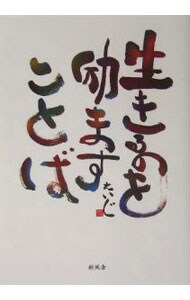 生きるのを
励ます
ことば
たいじ
新風舎